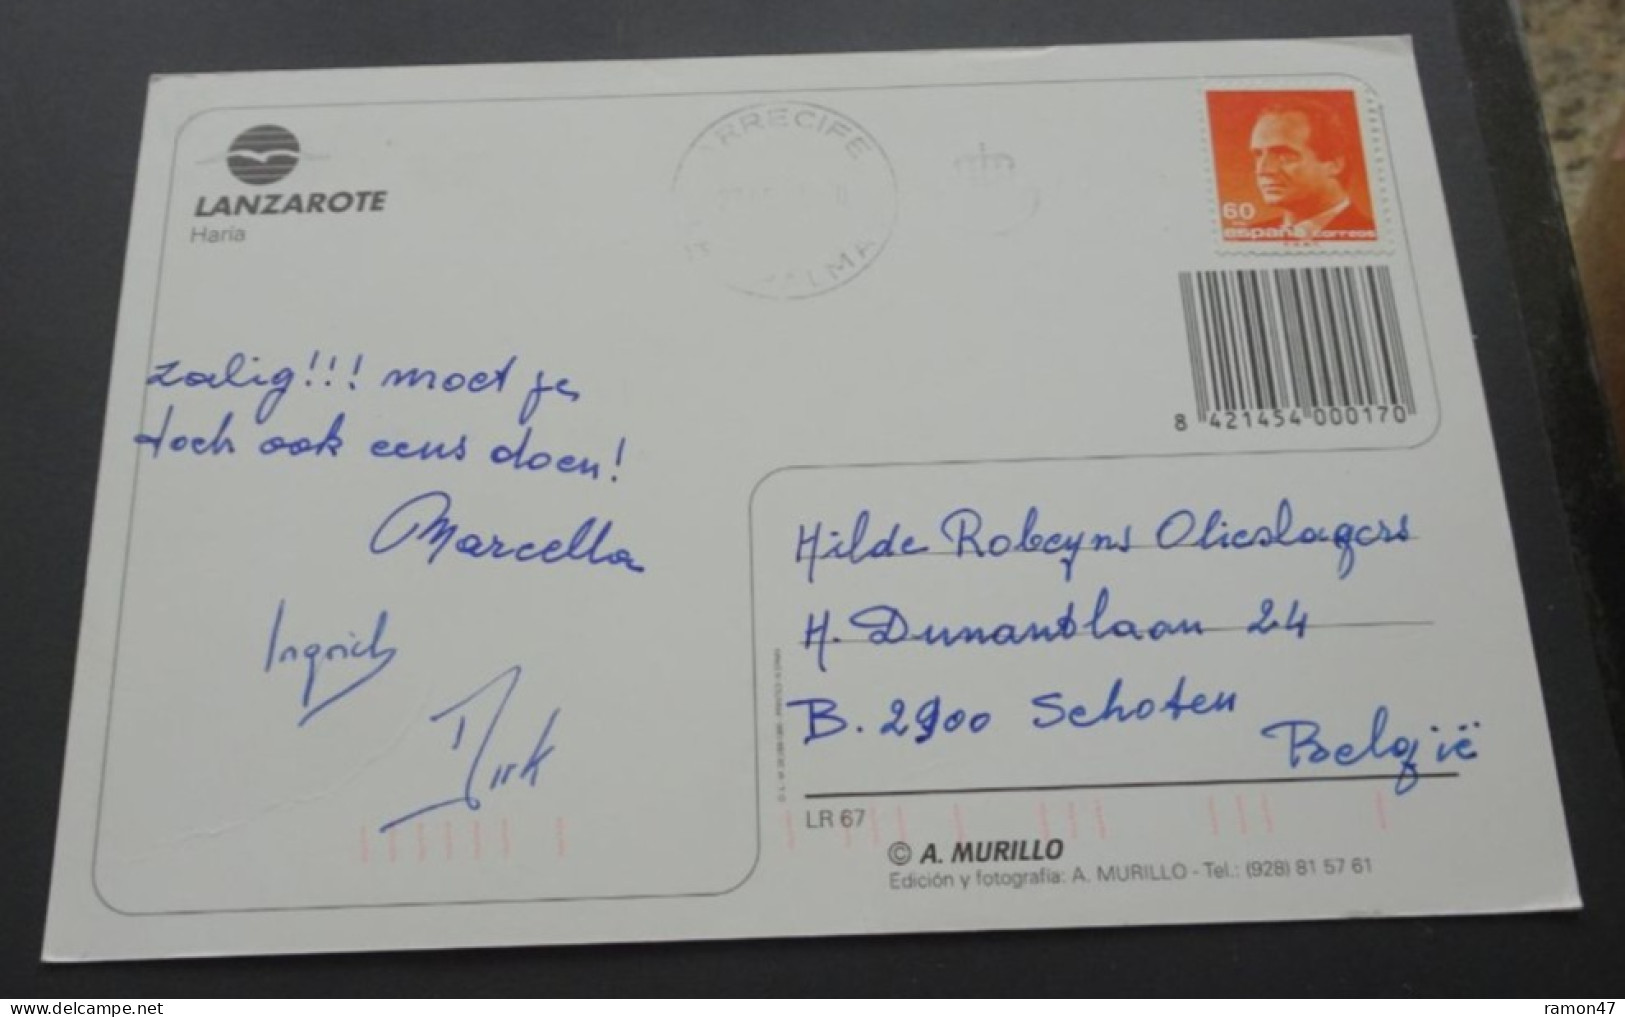 LANZAROTE
Haría
ARRECIFE
PALMA
60
españa correos
8 421454 000170
zalig!!! moet je
toch ook eens doen!
Marcella
Ingrid
Dirk
Hilde Robeyns Olieslagers
H. Dunantlaan 24
B. 2900 Schoten
België
LR 67
© A. MURILLO
Edición y fotografía: A. MURILLO - Tel.: (928) 81 57 61
delcampe.net
ramon47